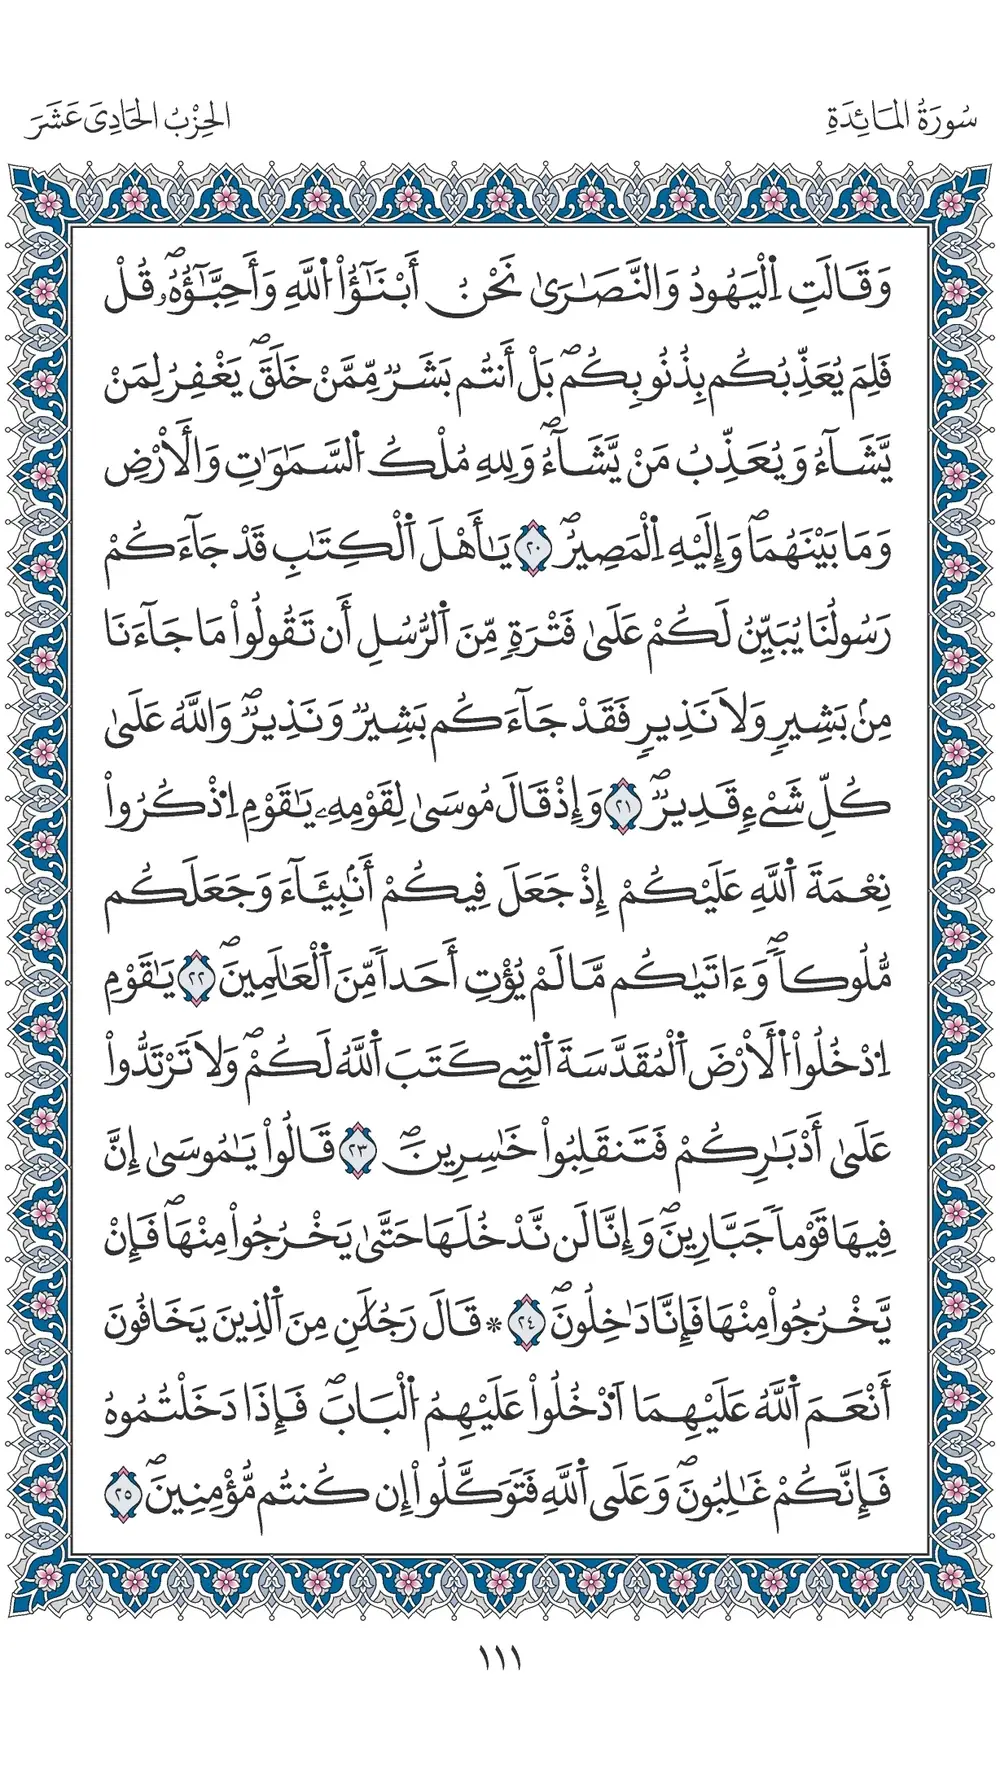 سُورَةُ المَائِدَةِ
الحِزْبُ الحَادِيَ عَشَرَ
وَقَالَتِ اِ۬لْيَهُودُ وَالنَّصَٰرَىٰ نَحْنُ أَبْنَٰٓؤُاْ اُ۬للَّهِ وَأَحِبَّٰٓؤُهُۥۖ قُلْ
فَلِمَ يُعَذِّبُكُم بِذُنُوبِكُمۖ بَلْ أَنتُم بَشَرٞ مِّمَّنْ خَلَقَۖ يَغْفِرُ لِمَنْ
يَّشَآءُ وَيُعَذِّبُ مَنْ يَّشَآءُۖ وَلِلهِ مُلْكُ اُ۬لسَّمَٰوَٰتِ وَالَارْضِ
وَمَا بَيْنَهُمَاۖ وَإِلَيْهِ اِ۬لْمَصِيرُۖ ٢٠ يَٰأَهْلَ اَ۬لْكِتَٰبِ قَدْ جَآءَكُمْ
رَسُولُنَا يُبَيِّنُ لَكُمْ عَلَىٰ فَتْرَةٖ مِّنَ اَ۬لرُّسُلِ أَن تَقُولُواْ مَا جَآءَنَا
مِنۢ بَشِيرٖ وَلَا نَذِيرٖ فَقَدْ جَآءَكُم بَشِيرٞ وَنَذِيرٞۖ وَاللَّهُ عَلَىٰ
كُلِّ شَےْءٖ قَدِيرٞۖ ٢١ وَإِذْ قَالَ مُوسَىٰ لِقَوْمِهِۦ يَٰقَوْمِ اِ۟ذْكُرُواْ
نِعْمَةَ اَ۬للَّهِ عَلَيْكُمْ إِذْ جَعَلَ فِيكُمْ أَنۢبِيَآءَ وَجَعَلَكُم
مُّلُوكاٗۖ وَءَاتَيٰكُم مَّا لَمْ يُؤْتِ أَحَداٗ مِّنَ اَ۬لْعَٰلَمِينَۖ ٢٢ يَٰقَوْمِ
اِ۟دْخُلُواْ اُ۬لَارْضَ اَ۬لْمُقَدَّسَةَ اَ۬لتِے كَتَبَ اَ۬للَّهُ لَكُمْۖ وَلَا تَرْتَدُّواْ
عَلَىٰ أَدْبَٰرِكُمْ فَتَنقَلِبُواْ خَٰسِرِينَۖ ٢٣ قَالُواْ يَٰمُوسَىٰ إِنَّ
فِيهَا قَوْماٗ جَبَّارِينَۖ وَإِنَّا لَن نَّدْخُلَهَا حَتَّىٰ يَخْرُجُواْ مِنْهَاۖ فَإِنْ
يَّخْرُجُواْ مِنْهَا فَإِنَّا دَٰخِلُونَۖ ٢٤ ۞ قَالَ رَجُلَٰنِ مِنَ اَ۬لذِينَ يَخَافُونَ
أَنْعَمَ اَ۬للَّهُ عَلَيْهِمَا اَ۟دْخُلُواْ عَلَيْهِمُ اُ۬لْبَابَۖ فَإِذَا دَخَلْتُمُوهُ
فَإِنَّكُمْ غَٰلِبُونَۖ وَعَلَى اَ۬للَّهِ فَتَوَكَّلُواْ إِن كُنتُم مُّؤْمِنِينَۖ ٢٥
١١١